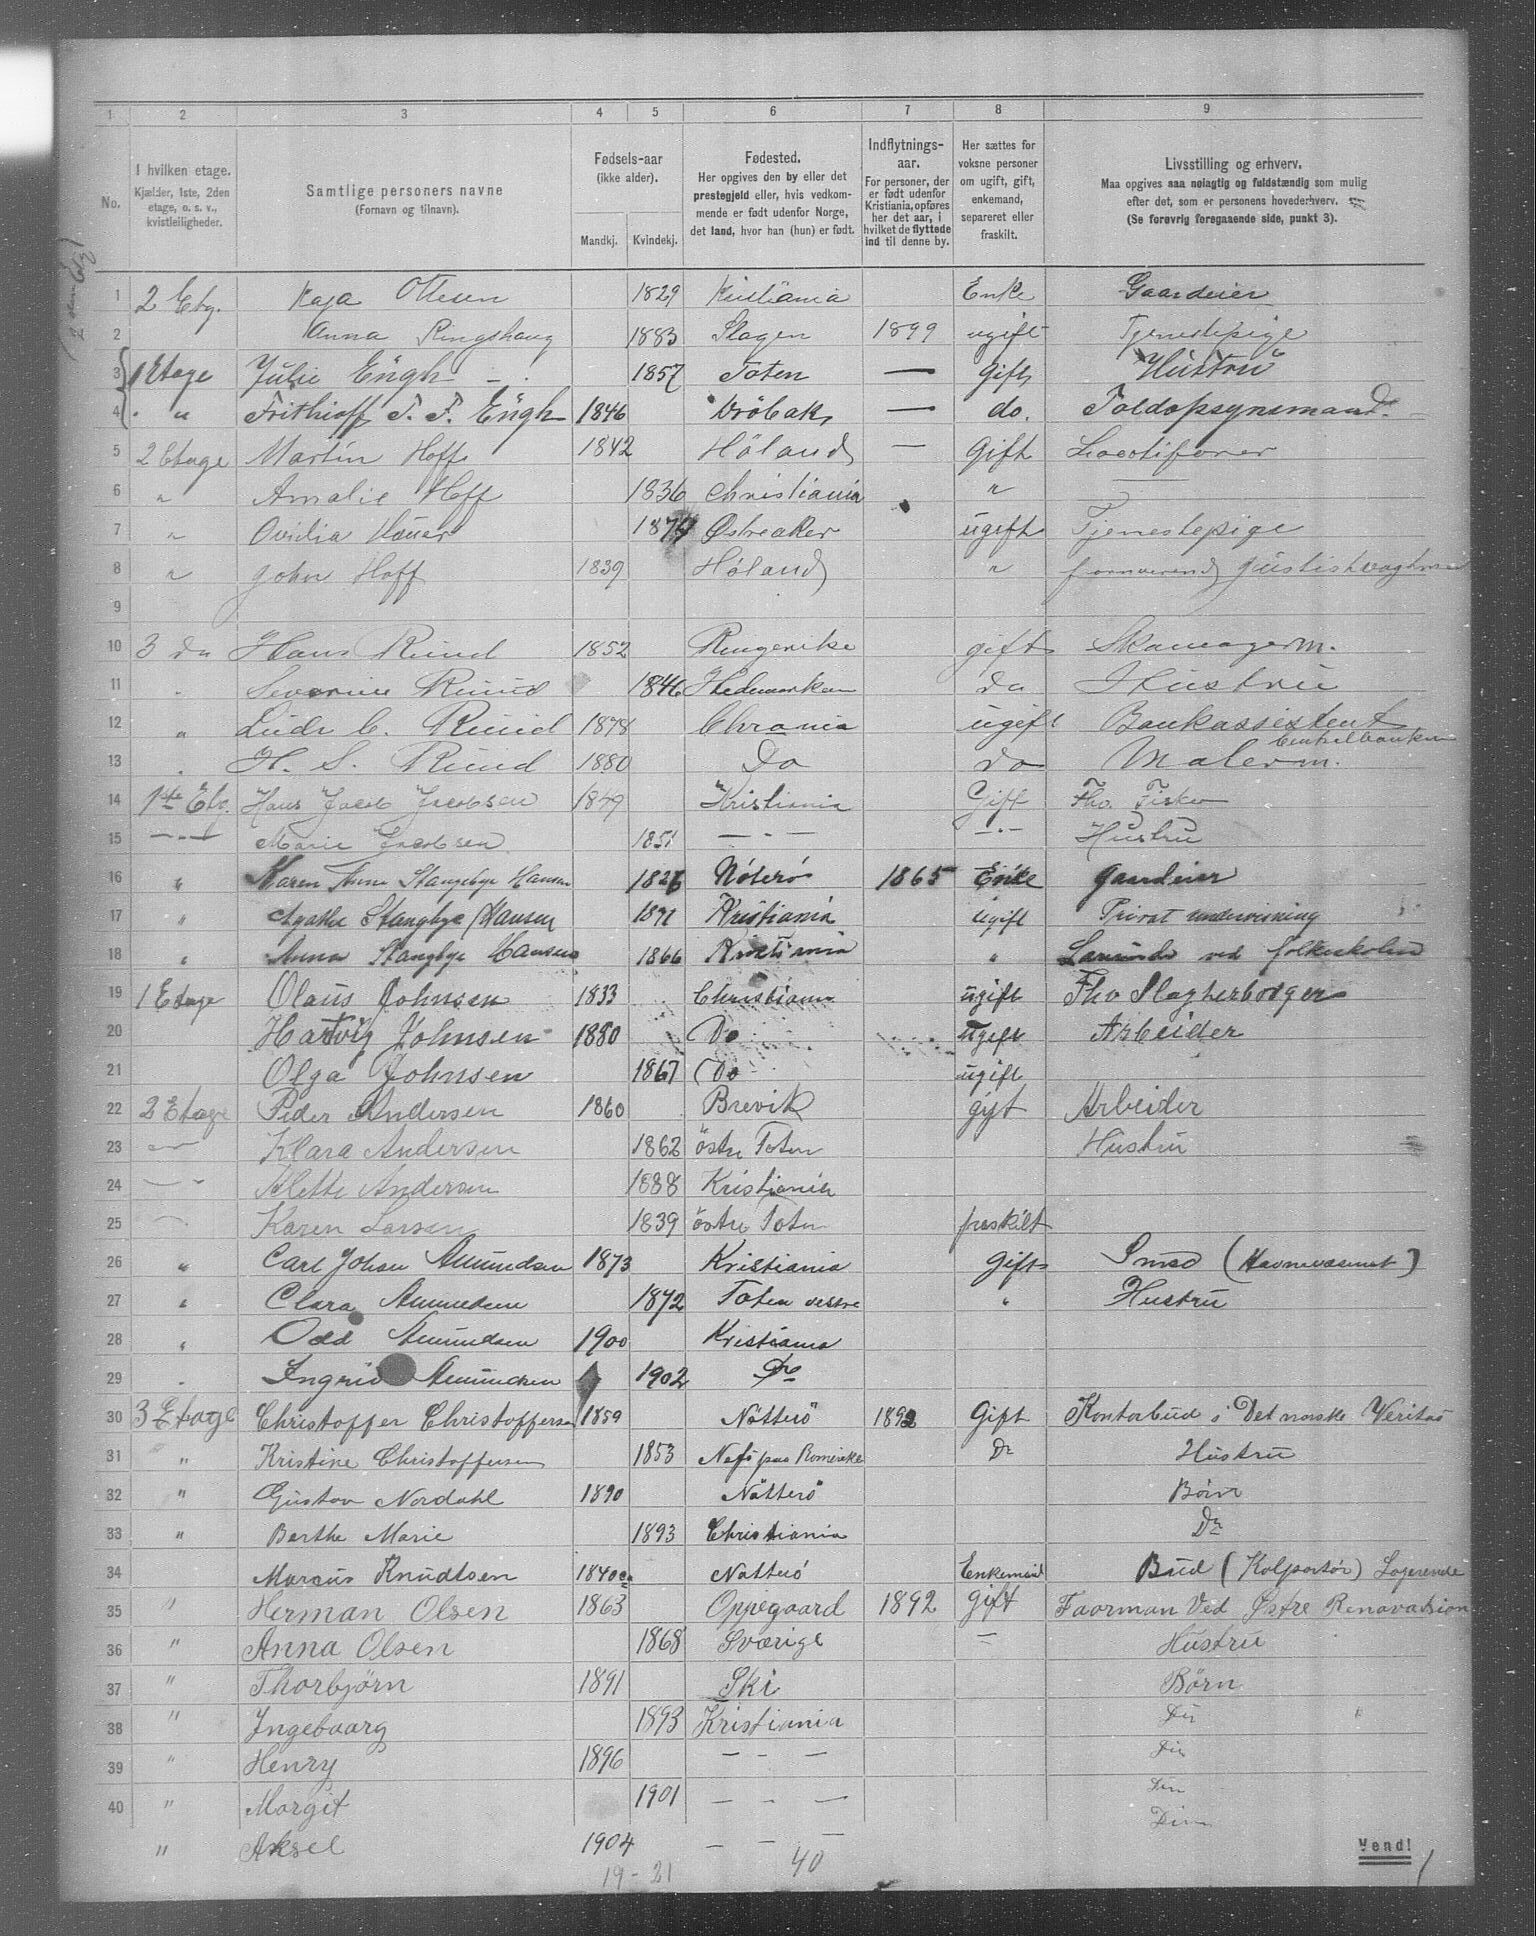 1 2 3 4 5 6 7 8 9
No.
I hvilken etage.
Kjælder, 1ste, 2den
etage, o. s. v.,
kvistleiligheder.
Samtlige personers navne
(Fornavn og tilnavn).
Fødsels-aar
(ikke alder).
Mandkj. Kvindekj.
Fødested.
Her opgives den by eller det
prestegjeld eller, hvis vedkom-
mende er født udenfor Norge,
det land, hvor han (hun) er født.
Indflytnings-
aar.
For personer, der
er født udenfor
Kristiania, opføres
her det aar, i
hvilket de flyttede
ind til denne by.
Her sættes for
voksne personer
om ugift, gift,
enkemand,
separeret eller
fraskilt.
Livsstilling og erhverv.
Maa opgives saa nøiagtig og fuldstændig som mulig
efter det, som er personens hovederhverv.
(Se forøvrig foregaaende side, punkt 3).
1 2 Etg. Kaja Ottesen 1829 Kristiania Enke Gaardeier
2 Anna Ringshaug 1883 Slagen 1899 ugift Tjenestepige
3 1 Etage Julie Engh 1857 Toten — Gift Hustru
4 " Frithioff T. F. Engh 1846 Drøbak — do. Toldopsynsmand.
5 2 Etage Martin Hoff 1842 Høland — Gift
6 " Amalie Hoff 1836 Christiania "
7 " Ovidia 1874 Østreaker ugift Tjenestepige
8 " John Hoff 1839 Høland " forværend
9
10 3 do Hans Ruud 1852 Ringerike gift Skomagerm.
11 " Severine Ruud 1846 Hedemarken do Hustru
12 " Ludv C. Ruud 1878 Chrania ugift Bankassistent
Centralbanken
13 " H. S. Ruud 1880 Do do Malerm.
14 1ste Etg. Hans Jacob Jacobsen 1849 Kristiania Gift Fhv. Fisker
15 — " — Marie Jacobsen 1851 — " — — " — Hustru
16 " Karen Anne Stangebye Hansen 1826 Nøterø 1865 Enke Gaardeier
17 " Agathe Stangbye Hansen 1871 Kristiania ugift Privat undervisning
18 " Anna Stangbye Hansen 1866 Kristiania " Lærerinde ved folkeskolen
19 1 Etage Olaus Johnsen 1833 Christiania ugift Fhv Slagterborger
20 Hartvig Johnsen 1880 Do ugift Arbeider
21 Olga Johnsen 1867 Do ugift
22 2 Etage Peder Andersen 1860 Brevik gift Arbeider
23 — Klara Andersen 1862 östre Toten Hustru
24 — " Alette Andersen 1888 Kristiania
25 — Karen Larsen 1839 östre Toten fraskilt
26 " Carl Johan Amundsen 1873 Kristiania Gift Smed (Havnevæsenet)
27 " Clara Amundsen 1872 Toten vestre " Hustru
28 " Odd Amundsen 1900 Kristiania
29 " Ingrid Amundsen 1902 Do
30 3 Etage Christoffer Christoffersen 1859 Nötterö 1892 Gift Kontorbud i Det norske Veritas
31 " Kristine Christoffersen 1853 Næs paa Romerike Do Hustru
32 " Gustav Nordahl 1890 Nötterö Börn
33 " Berthe Marie 1893 Christiania Do
34 Marcus Knudtsen 1840 Nötterö Enkemand Bud (Kolportør) Logerende
35 " Herman Olsen 1863 Oppegaard 1892 Gift Faorman Ved Østre Renovation
36 " Anna Olsen 1868 Sværige — Hustru
37 " Thorbjörn 1891 Ski Børn
38 " Ingeboarg 1893 Kristiania Din
39 " Henry 1896 — — — Din
40 " Margit 1901 — — — Din
" Aksel 1904 — — — Din
19 - 21 40
Vend!